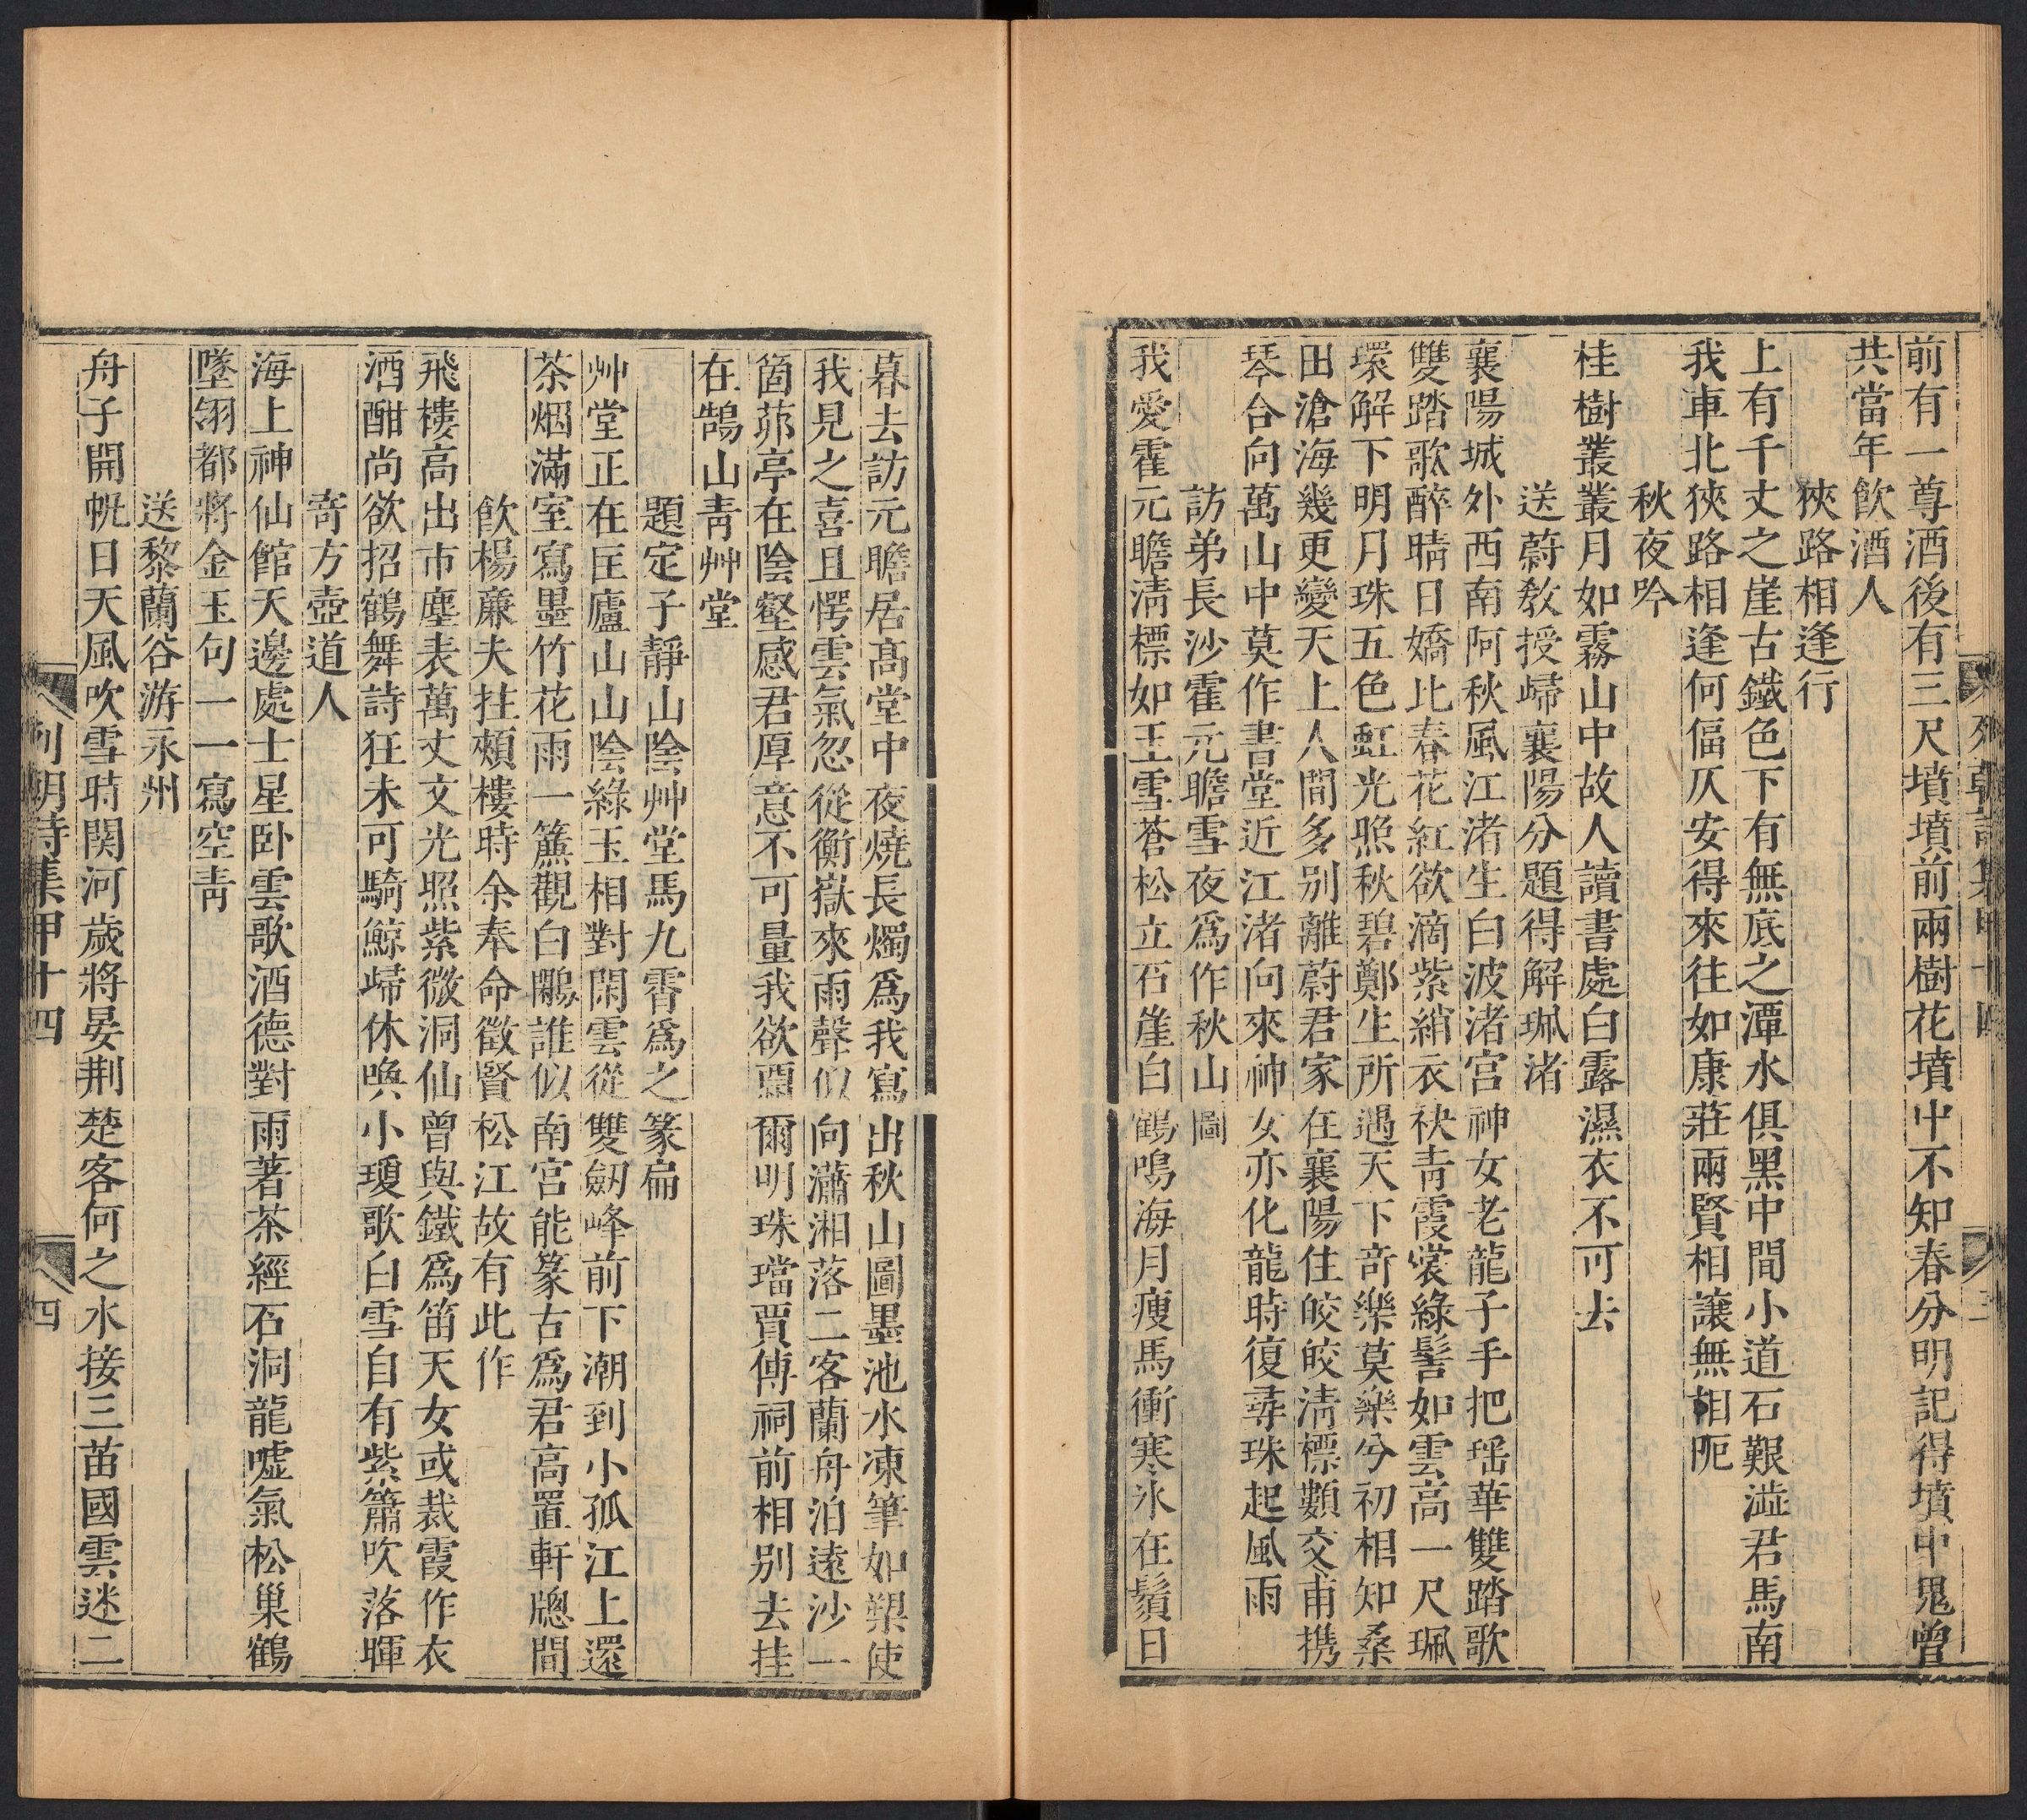 前有一尊酒後有三尺墳墳前兩樹花墳中不知春分明記得墳中鬼曾
共當年飲酒人
狹路相逢行
上有千丈之崖古鐵色下有無底之潭水俱黑中間小道石艱澁君馬南
我車北狹路相逢何偪仄安得來往如康莊兩賢相讓無相阨
秋夜吟
桂樹叢叢月如霧山中故人讀書處白露濕衣不可去
送蔚敎授歸襄陽分題得解珮渚
襄陽城外西南阿秋風江渚生白波渚宮神女老龍子手把瑶華雙踏歌
雙踏歌醉晴日嬌比春花紅欲滴紫綃衣袂靑霞裳綠髻如雲高一尺珮
環解下明月珠五色虹光照秋碧鄭生所遇天下竒樂莫樂兮初相知桑
田滄海幾更變天上人間多別離蔚君家在襄陽住皎皎淸標顭交甫携
琴合向萬山中莫作書堂近江渚向來神女亦化龍時復尋珠起風雨
訪弟長沙霍元瞻雪夜爲作秋山圖
我愛霍元瞻淸標如玉雪蒼松立石崖白鶴鳴海月瘦馬衝寒氷在鬚日
列朝詩集甲十四
三
暮去訪元瞻居高堂中夜燒長燭爲我寫出秋山圖墨池水凍筆如槊使
我見之喜且愕雲氣忽從衡嶽來雨聲似向瀟湘落二客蘭舟泊遠沙一
箇茆亭在陰壑感君厚意不可量我欲酬爾明珠璫賈傅祠前相別去挂
在鵠山靑艸堂
題定子靜山陰艸堂馬九霄爲之篆扁
艸堂正在匡廬山山陰綠玉相對閑雲從雙劒峰前下潮到小孤江上還
茶烟滿室寫墨竹花雨一簾觀白鷳誰似南宮能篆古爲君高置軒牕間
飮楊亷夫拄頰樓時余奉命徵賢松江故有此作
飛樓高出市塵表萬丈文光照紫微洞仙曾與鐵爲笛天女或裁霞作衣
酒酣尚欲招鶴舞詩狂未可騎鯨歸休喚小瓊歌白雪自有紫簫吹落暉
寄方壺道人
海上神仙館天邊處士星卧雲歌酒德對雨著茶經石洞龍噓氣松巢鶴
墜翎都將金玉句一一寫空靑
送黎蘭谷游永州
舟子開帆日天風吹雪時関河歲將晏荆楚客何之水接三苗國雲迷二
列朝詩集甲十四
四